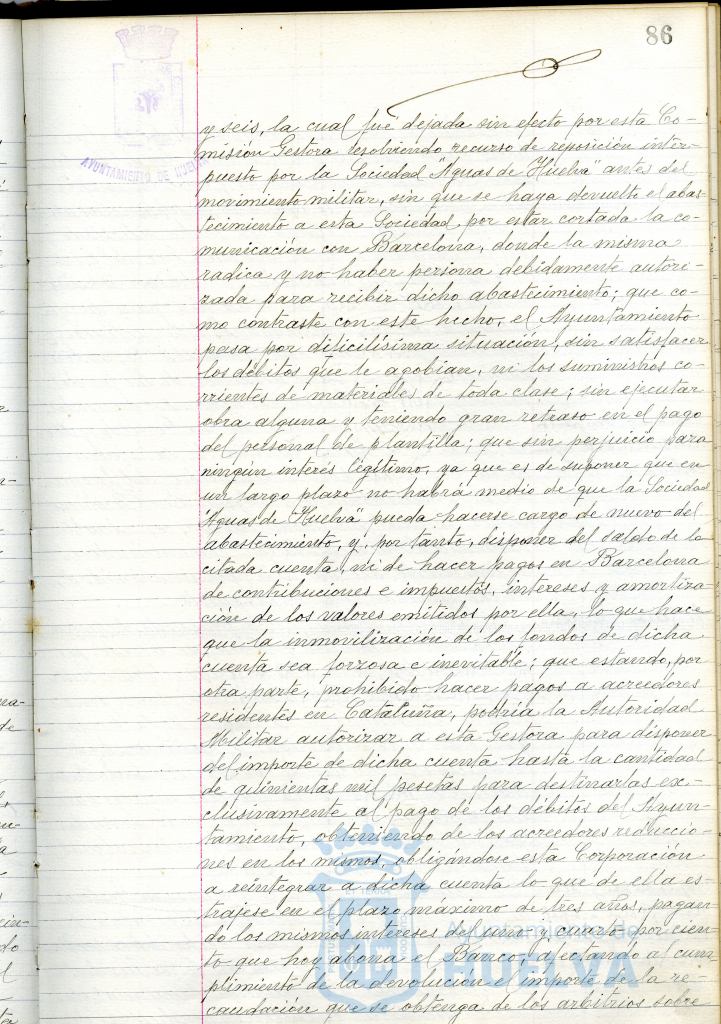 86
AYUNTAMIENTO DE HUEL
y seis, la cual fué dejada sin efecto por esta Co-
misión Gestora resolviendo recurso de reposición inter-
puesto por la Sociedad "Aguas de Huelva" antes del
movimiento militar, sin que se haya devuelto el abas-
tecimiento a esta Sociedad por estar cortada la co-
municación con Barcelona, donde la misma
radica y no haber persona debidamente autori-
zada para recibir dicho abastecimiento; que co-
mo contraste con este hecho, el Ayuntamiento
pasa por dificilísima situación, sin satisfacer
los débitos que le agobian, ni los suministros co-
rrientes de materiales de toda clase; sin ejecutar
obra alguna y teniendo gran retraso en el pago
del personal de plantilla; que sin perjuicio para
ningún interés legítimo, ya que es de suponer que en
un largo plazo no habrá medio de que la Sociedad
"Aguas de Huelva" pueda hacerse cargo de nuevo del
abastecimiento, y, por tanto, disponer del saldo de la
citada cuenta, ni de hacer pagos en Barcelona
de contribuciones e impuestos, intereses y amortiza-
ción de los valores emitidos por ella, lo que hace
que la inmovilización de los fondos de dicha
cuenta sea forzosa e inevitable; que estando, por
otra parte, prohibido hacer pagos a acreedores
residentes en Cataluña, podría la Autoridad
Militar autorizar a esta Gestora para disponer
del importe de dicha cuenta hasta la cantidad
de quinientas mil pesetas para destinarlas ex-
clusivamente al pago de los débitos del Ayun-
tamiento, obteniendo de los acreedores reduccio-
nes en los mismos, obligándose esta Corporación
a reintegrar a dicha cuenta lo que de ella es-
trajese en el plazo máximo de tres años, pagan-
do los mismos intereses del uno y cuarto por cien-
to que hoy abona el Banco, afectando al cum-
plimiento de la devolución el importe de la re-
caudación que se obtenga de los arbitrios sobre
HUELVA